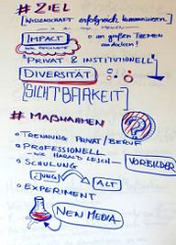 # ZIEL
WISSENSCHAFT erfolgreich kommunizieren
IMPACT
an großen THEMEN
PRIVAT & INSTITUTIONELL
DIVERSITÄT
SICHTBARKEIT
# MAẞNAHMEN
TRENNUNG PRIVAT/BERUF
PROFESSIONELL
WIE HARALD LESCH
VORBILDER
SCHULUNG
JUNG
ALT
EXPERIMENT
NEW MEDIA